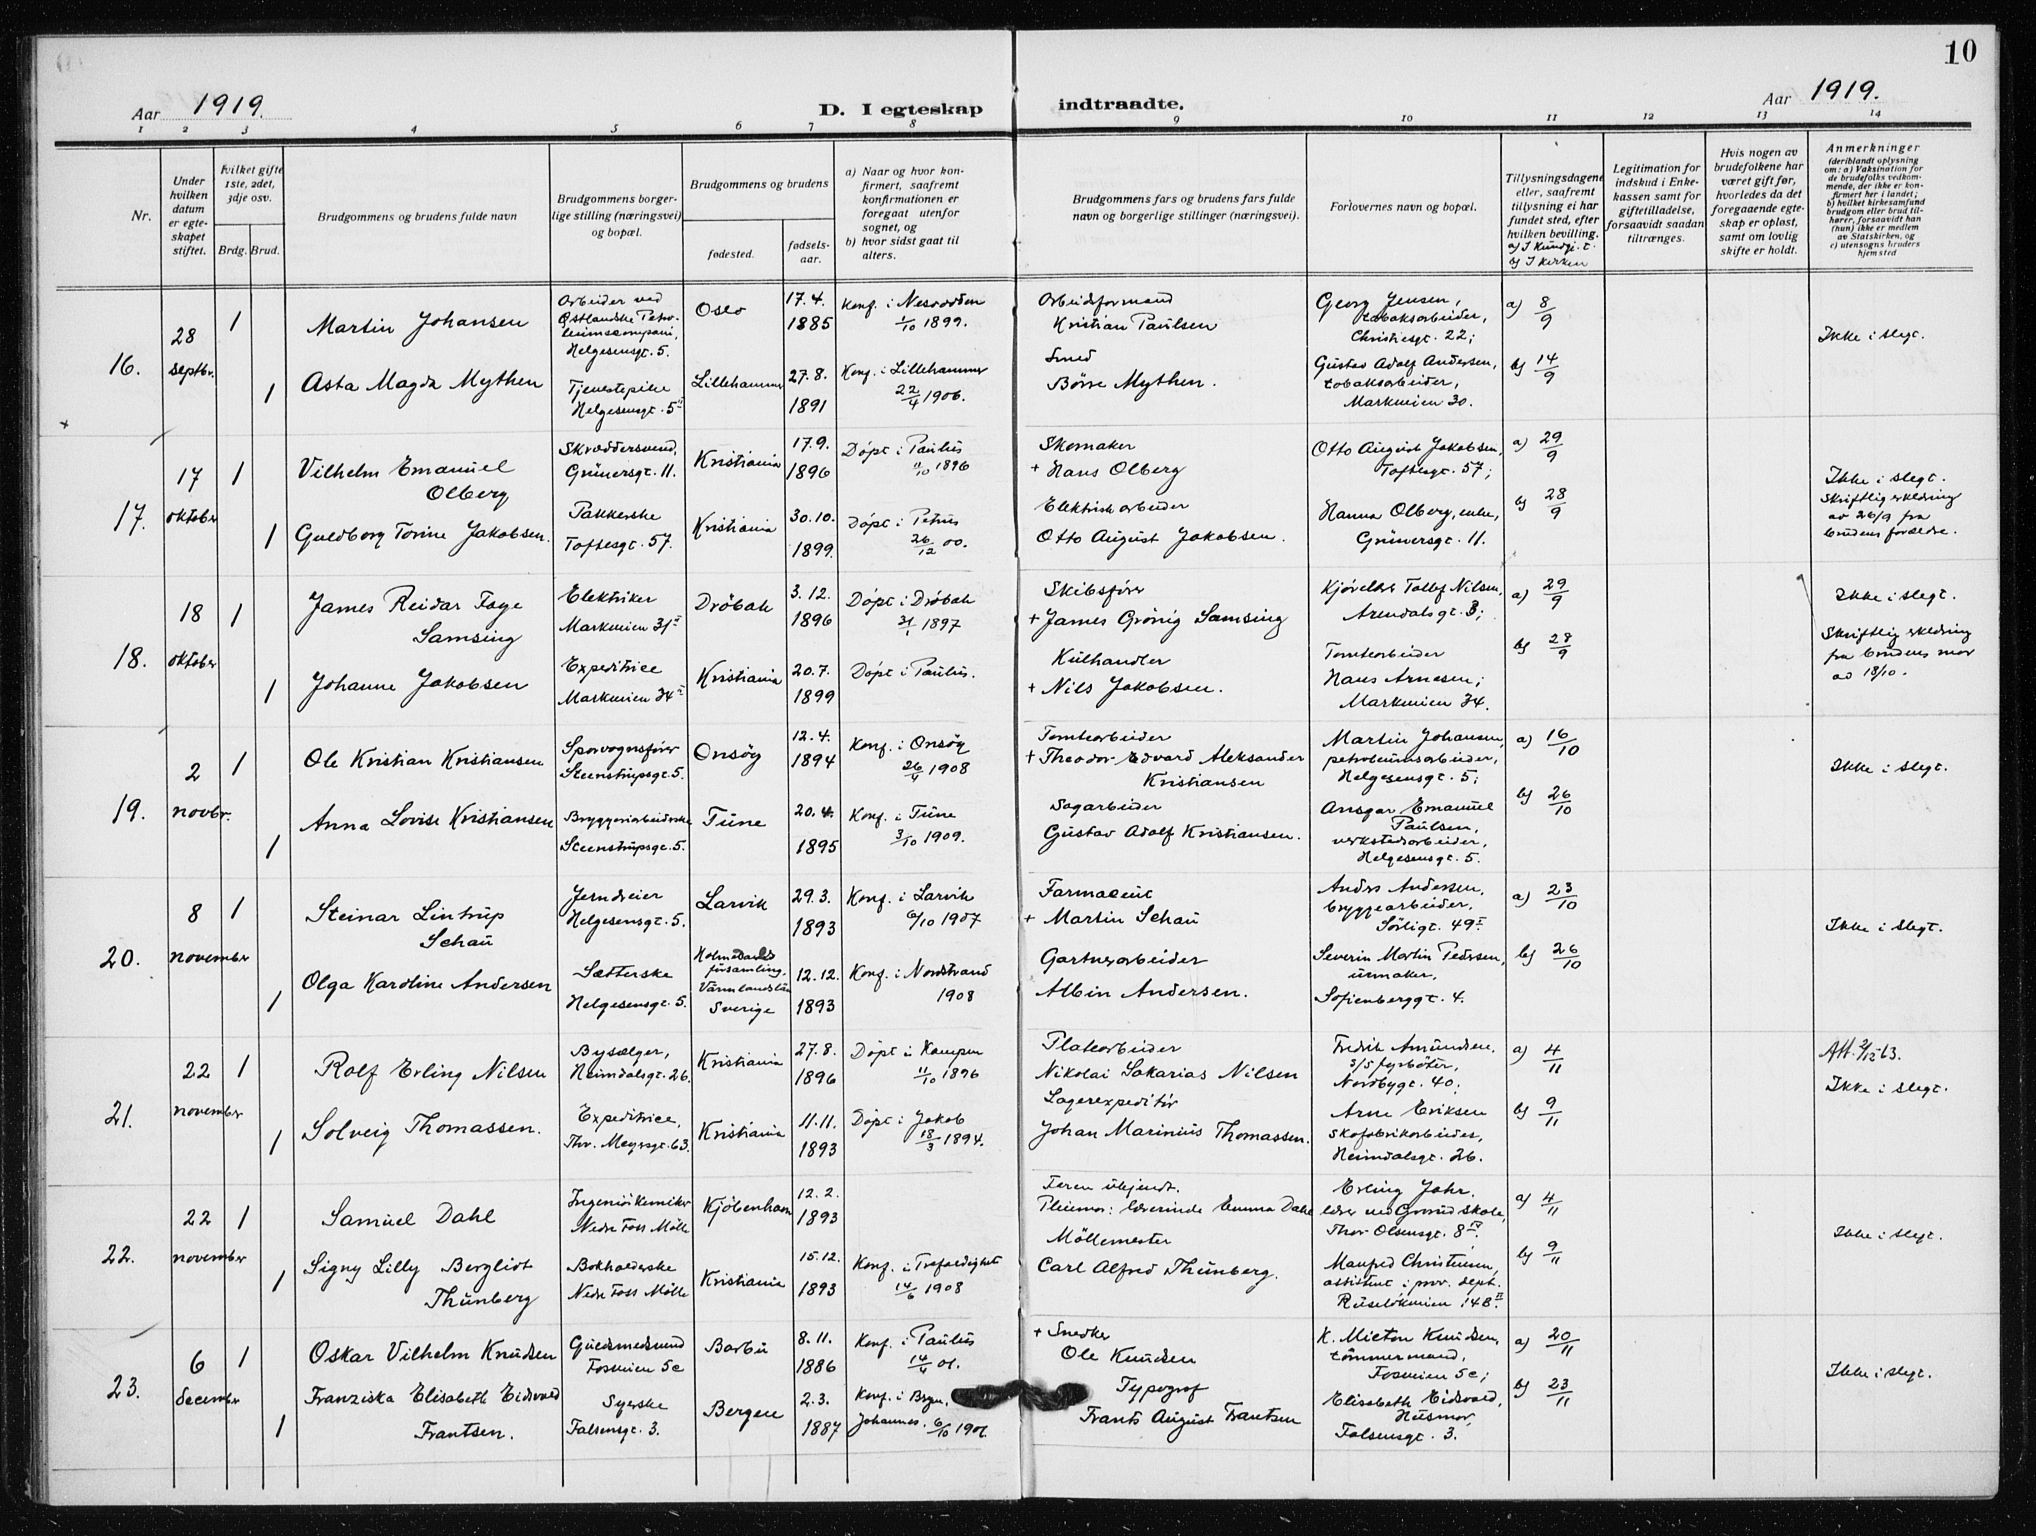 10
Aar 1919.
D. I egteskap indtraadte.
Aar 1919.
1 2 3 4 5 6 7 8 9 10 11 12 13 14
Nr.
Under hvilken datum er egteskapet stiftet.
Hvilket gifte 1ste, 2det, 3dje osv.
Brdg. Brud.
Brudgommens og brudens fulde navn
Brudgommens borgerlige stilling (næringsvei) og bopæl.
Brudgommens og brudens
fødested.
fødselsaar.
a) Naar og hvor konfirmert, saafremt konfirmationen er foregaaet utenfor sognet, og
b) hvor sidst gaat til alters.
Brudgommens fars og brudens fars fulde navn og borgerlige stillinger (næringsvei).
Forlovernes navn og bopæl.
Tillysningsdagene eller, saafremt tillysning ei har fundet sted, efter hvilken bevilling.
a) I Kundgj. t.
b) I kirken
Legitimation for indskud i Enkekassen samt for giftetilladelse, forsaavidt saadan tiltrænges.
Hvis nogen av brudefolkene har været gift før, hvorledes da det foregaaende egteskap er opløst, samt om lovlig skifte er holdt.
Anmerkninger
(deriblandt oplysning om: a) Vaksination for de brudefolks vedkommende, der ikke er konfirmert her i landet;
b) hvilket kirkesamfund brudgom eller brud tilhører, forsaavidt han (hun) ikke er medlem av Statskirken, og
c) utensogns bruders hjemsted
16.
28 septbr.
1
Martin Johansen
Arbeider ved Østlandske Petroleumscompani, Helgesensgt. 5.
Oslo
17.4. 1885
Konf. i Nesodden 1/10 1899.
Arbeidsformand
Kristian Paulsen
Georg Jensen, tobaksarbeider, Christiesgt. 22;
a) 8/9
Ikke i slegt.
1
Asta Magda Mythen
Tjenestepike Helgesensgt. 5 II
Lillehammer
27.8. 1891
Konf. i Lillehammer 22/4 1906.
Smed
Børre Mythen.
Gustav Adolf Andersen, tobaksarbeider, Markveien 30.
b) 14/9
17.
17 oktober
1
Vilhelm Emanuel Olberg
Skræddersvend, Grünersgt. 11.
Kristiania
17.9. 1896
Døpt i Paulus 11/10 1896
Skomaker
+ Hans Olberg
Otto August Jakobsen, Toftesgt. 57;
a) 29/9
Ikke i slegt.
Skriftlig erklæring av 26/9 fra brudens forældre.
1
Guldborg Torine Jakobsen.
Pakkerske Toftesgt. 57.
Kristiania
30.10. 1899.
Døpt i Petrus 26/12 00.
Elektrisk arbeider
Otto August Jakobsen.
Hanna Olberg, enke, Grünersgt. 11.
b) 28/9
18.
18 oktober
1
James Reidar Foye Samsing
Elektriker Markveien 31 II
Drøbak
3.12. 1896
Døpt i Drøbak 31/1 1897
Skibsfører
+ James Grönig Samsing
Kjørelær Tollef Nilsen, Arendalsgt. 3;
a) 29/9
Ikke i slegt.
Skriftlig erklæring fra brudens mor av 18/10.
1
Johanne Jakobsen
Expeditrice Markveien 34 II
Kristiania
20.7. 1899
Døpt i Paulus.
Kulhandler
+ Nils Jakobsen.
Tomtearbeider Hans Arnesen; Markveien 34.
b) 28/9
19.
2 novbr.
1
Ole Kristian Kristiansen
Sporvognsfører Steenstrupsgt. 5.
Onsöy
12.4. 1894
Konf. i Onsöy 26/4 1908
Tomtearbeider
+ Theodor Edvard Aleksander Kristiansen
Martin Johansen, petroleumsarbeider, Helgesensgt. 5;
a) 16/10
Ikke i slegt.
1
Anna Lovise Kristiansen
Bryggeriarbeiderske Steenstrupsgt. 5.
Tune
20.4. 1895
Konf. i Tune 3/10 1909.
Sagarbeider
Gustav Adolf Kristiansen.
Ansgar Emanuel Paulsen, verkstedsarbeider, Helgesensgt. 5.
b) 26/10
20.
8 november
1
Steinar Lintrup Schau
Jerndreier Helgesensgt. 5.
Larvik
29.3. 1893
Konf. i Larvik 6/10 1907
Farmaceut
+ Martin Schau
Anders Andersen, bryggearbeider, Sörligt. 49 I
a) 23/10
Ikke i slegt.
1
Olga Karoline Andersen
Sætterske Helgesensgt. 5.
församling, Värmlandslän Sverige
12.12. 1893
Konf. i Nordstrand 1908
Gartnerarbeider
Albin Andersen.
Severin Martin Pedersen, urmaker, Sofienberggt. 4.
b) 26/10
21.
22 november
1
Rolf Erling Nilsen
Bysælger, Heimdalsgt. 26.
Kristiania
27.8. 1896
Døpt i Kampen 11/10 1896
Platearbeider
Nikolai Sakarias Nilsen
Fredrik Amundsen, 3/5 fyrbøter, Nordbygt. 40.
a) 4/11
Att. 2/12 63.
Ikke i slegt.
1
Solveig Thomassen.
Expeditrice, Thv. Meyersgt. 63
Kristiania
11.11. 1893
Døpt i Jakob 18/3 1894.
Lagerexpeditör
Johan Marinius Thomassen.
Arne Eriksen skofabrikarbeider, Heimdalsgt. 26.
b) 9/11
22.
22 november
1
Samuel Dahl
Ingeniörkemiker Nedre Foss Mölle
Kjöbenhavn
12.2. 1893
Faren ubekjendt.
Pleiemor: lærerinde Emma Dahl
Erling Jahr. lærer ved Grorud skole, Thor Olsensgt. 8 IV
a) 4/11
Ikke i slegt.
1
Signy Lilly Bergliot Thünberg
Bokholderske Nedre Foss Mölle
Kristiania
15.12. 1893
Konf. i Trefoldighet 14/6 1908
Möllemester
Carl Alfred Thünberg.
Manfred Christensen, assistent i prov. dept. Ruseløkveien 14B II
b) 9/11
23.
6 december
1
Oskar Vilhelm Knudsen
Guldsmedsvend Fosveien 5c
Barbu
8.11. 1886
Konf. i Paulus 14/4 01.
+ Snedker
Ole Knudsen
K. Milton Knudsen, tömmermand, Fosveien 5c;
a) 20/11
Ikke i slegt.
1
Franziska Elisabeth Eidsvold Frantsen.
Syerske Falsensgt. 3.
Bergen
2.3. 1887
Konf. i Bergen, Johannes. 6/10 1901.
Typograf
Frants August Frantsen
Elisabeth Eidsvold, Husmor, Falsensgt. 3.
b) 23/11